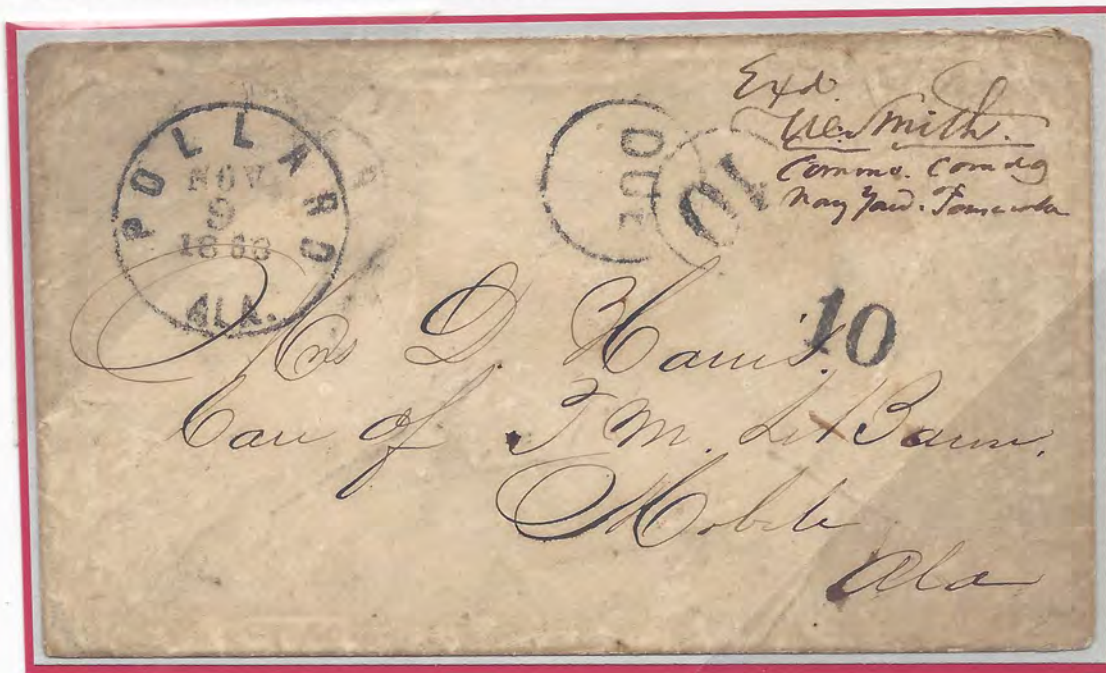 POLLARD
NOV
9
1863
ALA.
DUE
10
10
Exd.
Smith.
Commo. Comdg
Navy Yard. Pensacola
Mrs D. Harris.
Care of T M. Le Baron.
Mobile
Ala